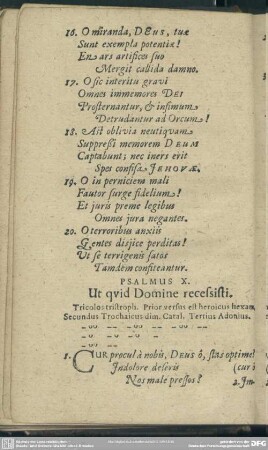 16. O miranda, DEus, tuæ
Sunt exempla potentiæ!
En ars artifices suo
Mergit callida damno.
17. O sic interitu gravi
Omnes immemores DEI
Prosternantur, & infimum
Detrudantur ad Orcum!
18. Ast oblivia neutiquam
Suppressi memorem DEUM
Captabunt; nec iners erit
Spes confisa JEHOVÆ.
19. O in perniciem mali
Fautor surge fidelium!
Et juris preme legibus
Omnes jura negantes.
20. O terroribus anxiis
Gentes disjice perditas!
Ut se terrigenis satos
Tandem confiteantur.
PSALMUS X.
Ut qvid Domine recessisti.
Tricolos tristroph. Prior versus est heroicus hexam.
Secundus Trochaicus dim. Catal. Tertius Adonius.
1. CUR procul à nobis, DEUS ô, stas optime!
In dolore deseris (cur i
Nos male pressos? 2. Im-